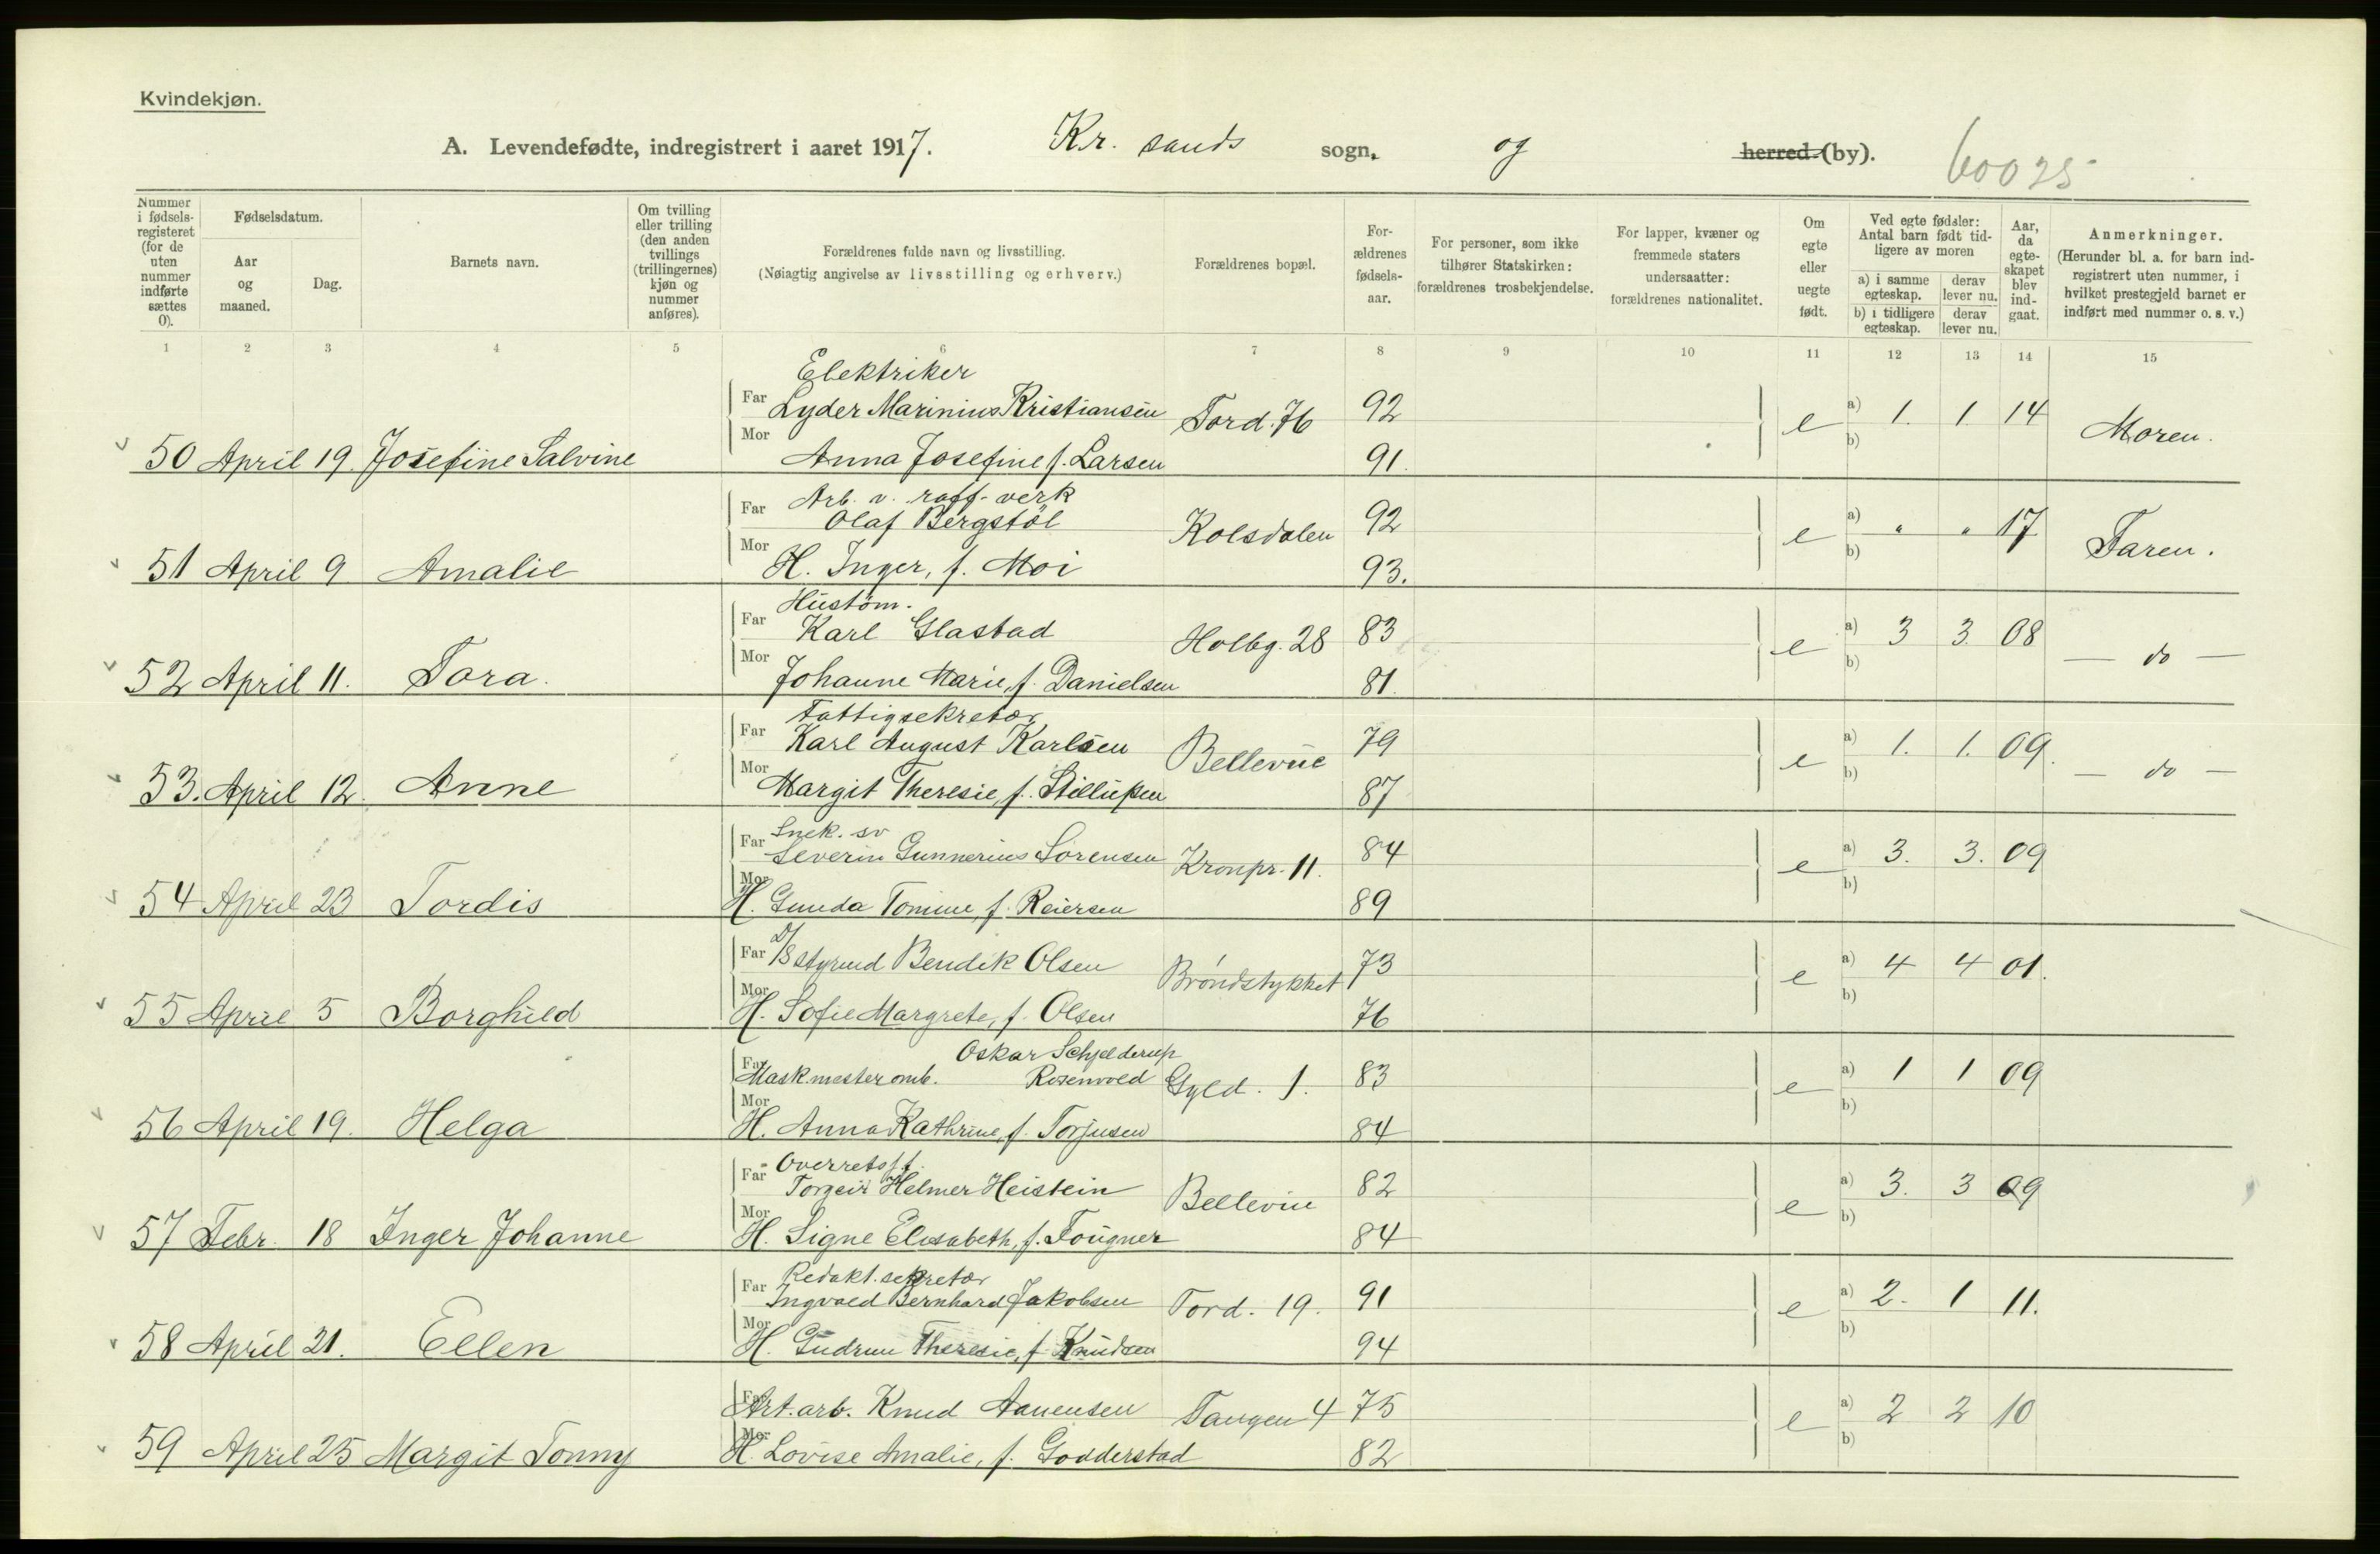 Kvindekjøn.
A. Levendefødte, indregistrert i aaret 1917. Kr. sands sogn, og herred (by). 60025
Nummer i fødselsregisteret (for de uten nummer indførte sættes 0).
Fødselsdatum.
Aar og maaned.
Dag.
Barnets navn.
Om tvilling eller trilling (den anden tvillings (trillingernes) kjøn og nummer anføres).
Forældrenes fulde navn og livsstilling.
(Nøiagtig angivelse av livsstilling og erhverv.)
Forældrenes bopæl.
Forældrenes fødselsaar.
For personer, som ikke tilhører Statskirken: forældrenes trosbekjendelse.
For lapper, kvæner og fremmede staters undersaatter: forældrenes nationalitet.
Om egte eller uegte født.
Ved egte fødsler: Antal barn født tidligere av moren
a) i samme egteskap.
derav lever nu.
b) i tidligere egteskap.
derav lever nu.
Aar, da egteskapet blev indgaat.
Anmerkninger.
(Herunder bl. a. for barn indregistrert uten nummer, i hvilket prestegjeld barnet er indført med nummer o. s. v.)
1 2 3 4 5 6 7 8 9 10 11 12 13 14 15
Elektriker
Far Lyder Marinius Kristiansen Tord. 76 92 e a) 1. 1 14 Moren.
Mor b)
50 April 19. Josefine Salvine Anna Josefine f. Larsen 91.
Arb. v. raff-verk
Far Olaf Bergstøl Kolsdalen 92 e a) " " 17 Faren.
Mor b)
51 April 9 Amalie H. Inger, f. Moi 93.
Hustøm.
Far Karl Glastad Holbg. 28 83 e a) 3 3 08 — do —
Mor b)
52 April 11. Tora. Johanne Marie, f. Danielsen 81.
Fattigsekretær
Far Karl August Karlsen Bellevue 79 e a) 1. 1. 09. — do —
Mor b)
53. April 12. Anne Margit Theresie, f. 87
Snek. sv
Far Severin Gunnerius Sørensen Kronpr. 11. 84 e a) 3. 3. 09
Mor b)
54 April 23 Tordis H. Gunda Tomine, f. Reiersen 89
Far D/S styrmd Bendik Olsen Brøndstykket 73 e a) 4 4 01.
Mor b)
55 April 5 Borghild H. Sofie Margrete, f. Olsen 76
Oskar Schjelderup
Far Maskmester omb. Rosenvold Gyld. 1. 83 e a) 1 1 09
Mor b)
56 April 19. Helga H. Anna Kathrine, f. Torjusen 84
Overretssf.
Far Torgeir Helmer Heistein Bellevue 82 e a) 3. 3 09
Mor b)
57 Febr. 18 Inger Johanne H. Signe Elisabeth, f. Fougner 84
Redakt. sekretær
Far Ingvald Bernhard Jakobsen Tord. 19. 91 e a) 2. 1 11.
Mor b)
58 April 21. Ellen H. Gudrun Theresie, f. Knudsen 94
Far Art. arb. Knud Aanensen Tangen 4 75 e a) 2 2 10
Mor b)
59 April 25 Margit Tonny H. Lovise Amalie, f. Godderstad 82